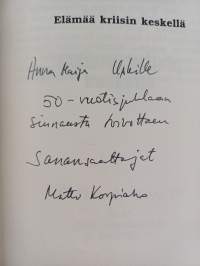 Elämää kriisin keskellä
Anna Kaija
50-vuotisjuhlaan
siunausta toivottaen
Sanansaattajat
Matko Korpiaho